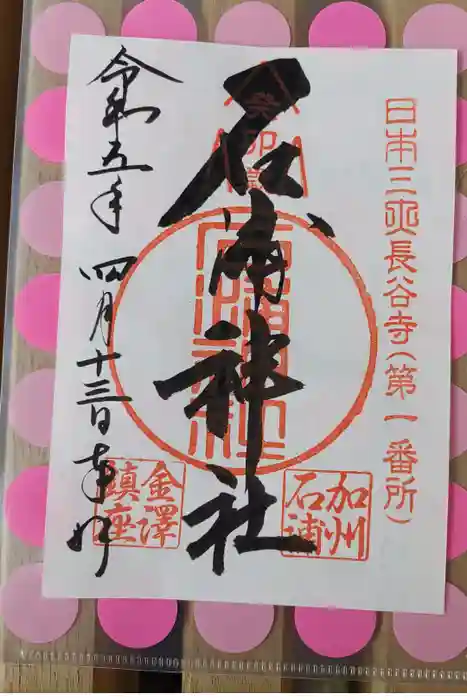 日本三大長谷寺(第一番所)
石浦神社
癸卯歳
石浦神社
加州
石浦
金澤
鎮座
令和五年 四月十三日 奉拝